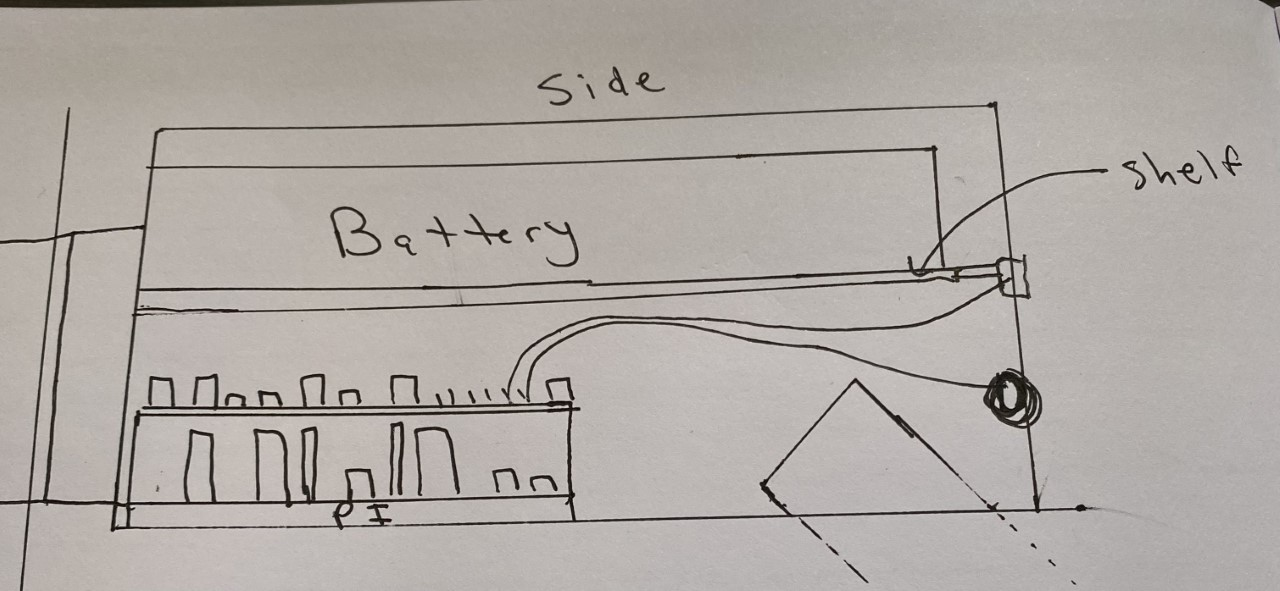 Side
shelf
Battery
PI